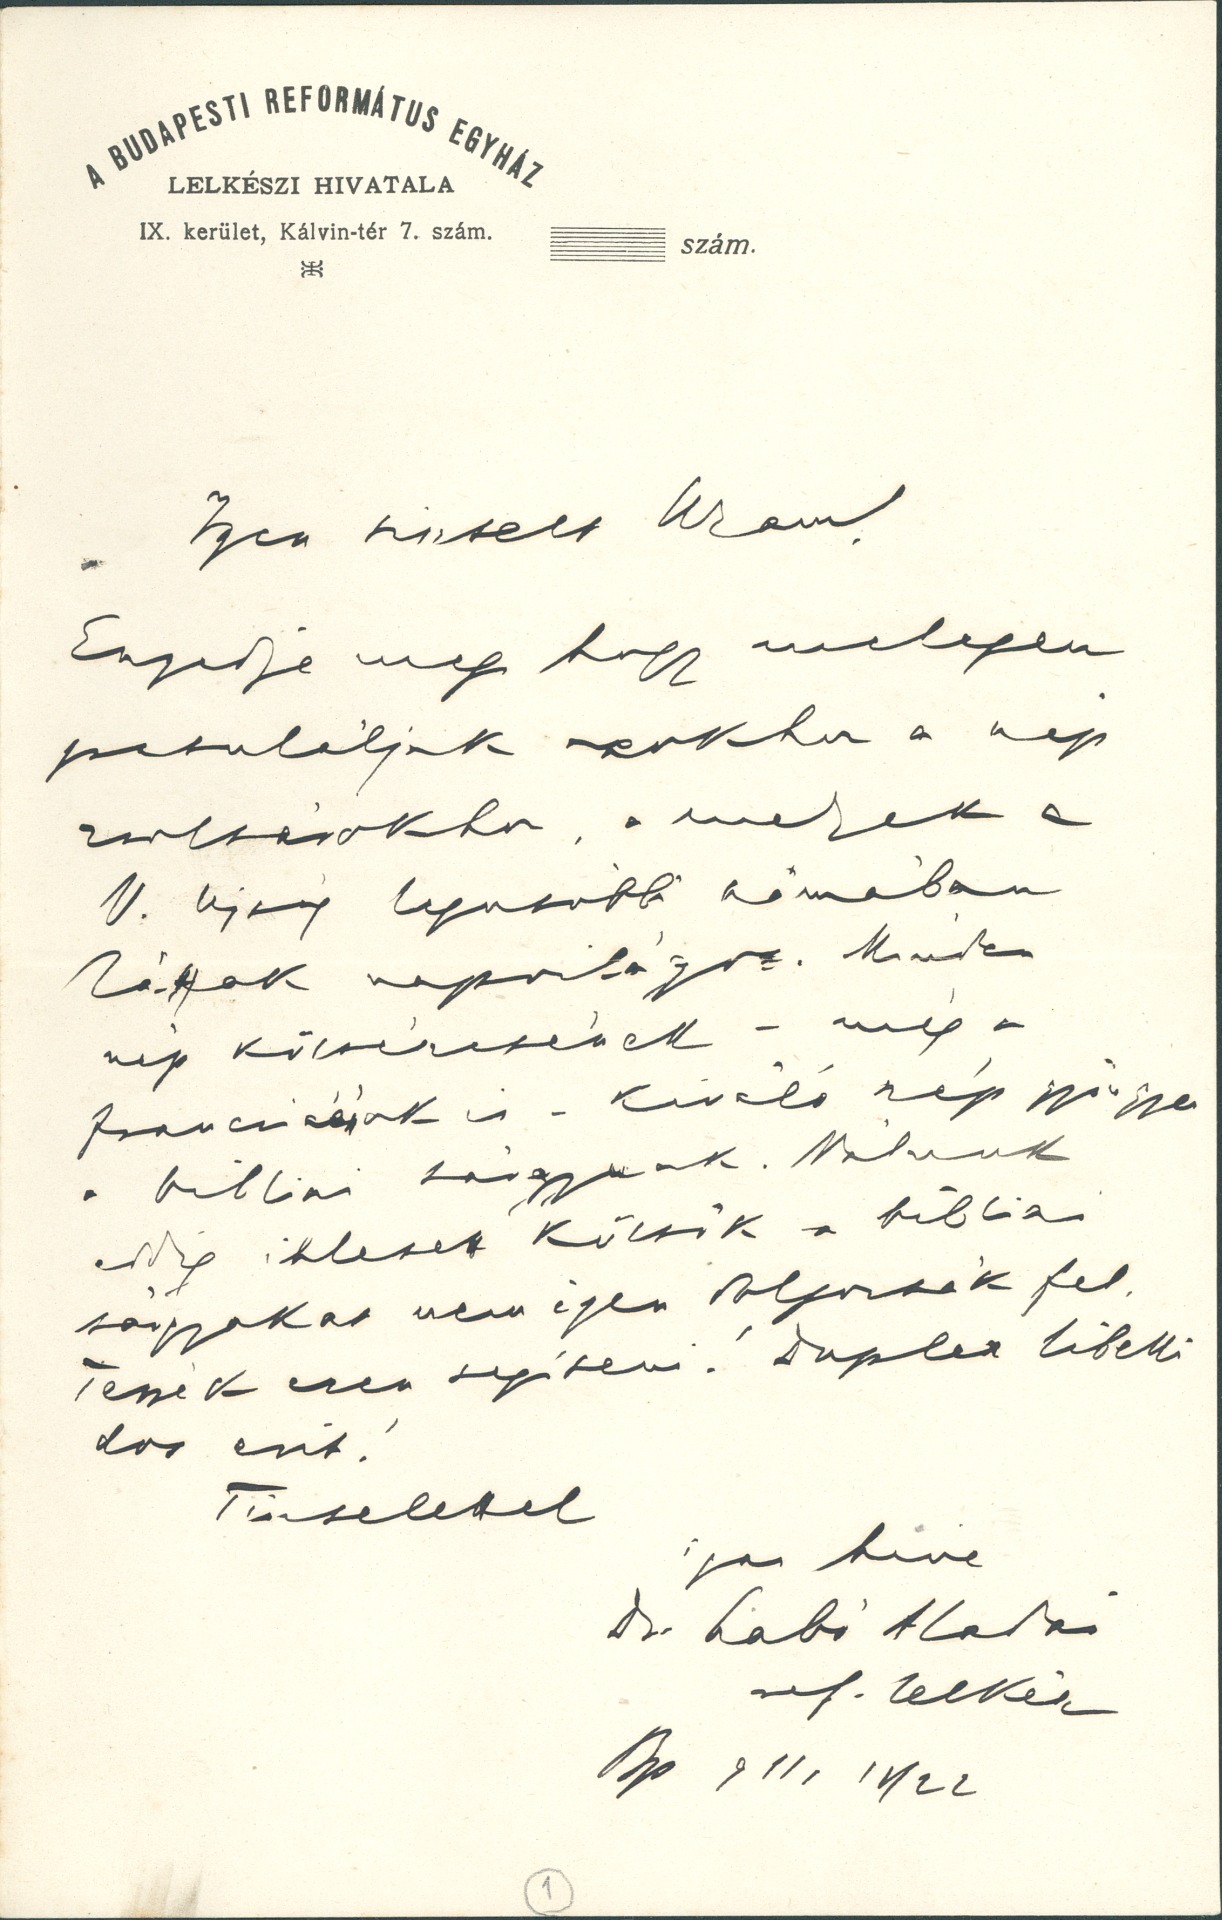 A BUDAPESTI REFORMÁTUS EGYHÁZ
LELKÉSZI HIVATALA
IX. kerület, Kálvin-tér 7. szám.
szám.
Igen tisztelt Uram!
Engedje meg hogy melegen
gratuláljak azokhoz a szép
zsoltárokhoz, a melyek a
V. Ujság legutóbbi számában
láttak napvilágot. Minden
nép költészetének – még a
franciáénak is – kiváló szép gyöngyei
a bibliai tárgyuak. Nálunk
eddig ihletett költők a bibliai
tárgyakat nem igen dolgozták fel.
Tessék ezen segíteni! Duplex libelli
dos erit!
Tisztelettel
igaz hive
Dr. Szabó Aladár
ref. lelkész
Bp 911, IV/22
1